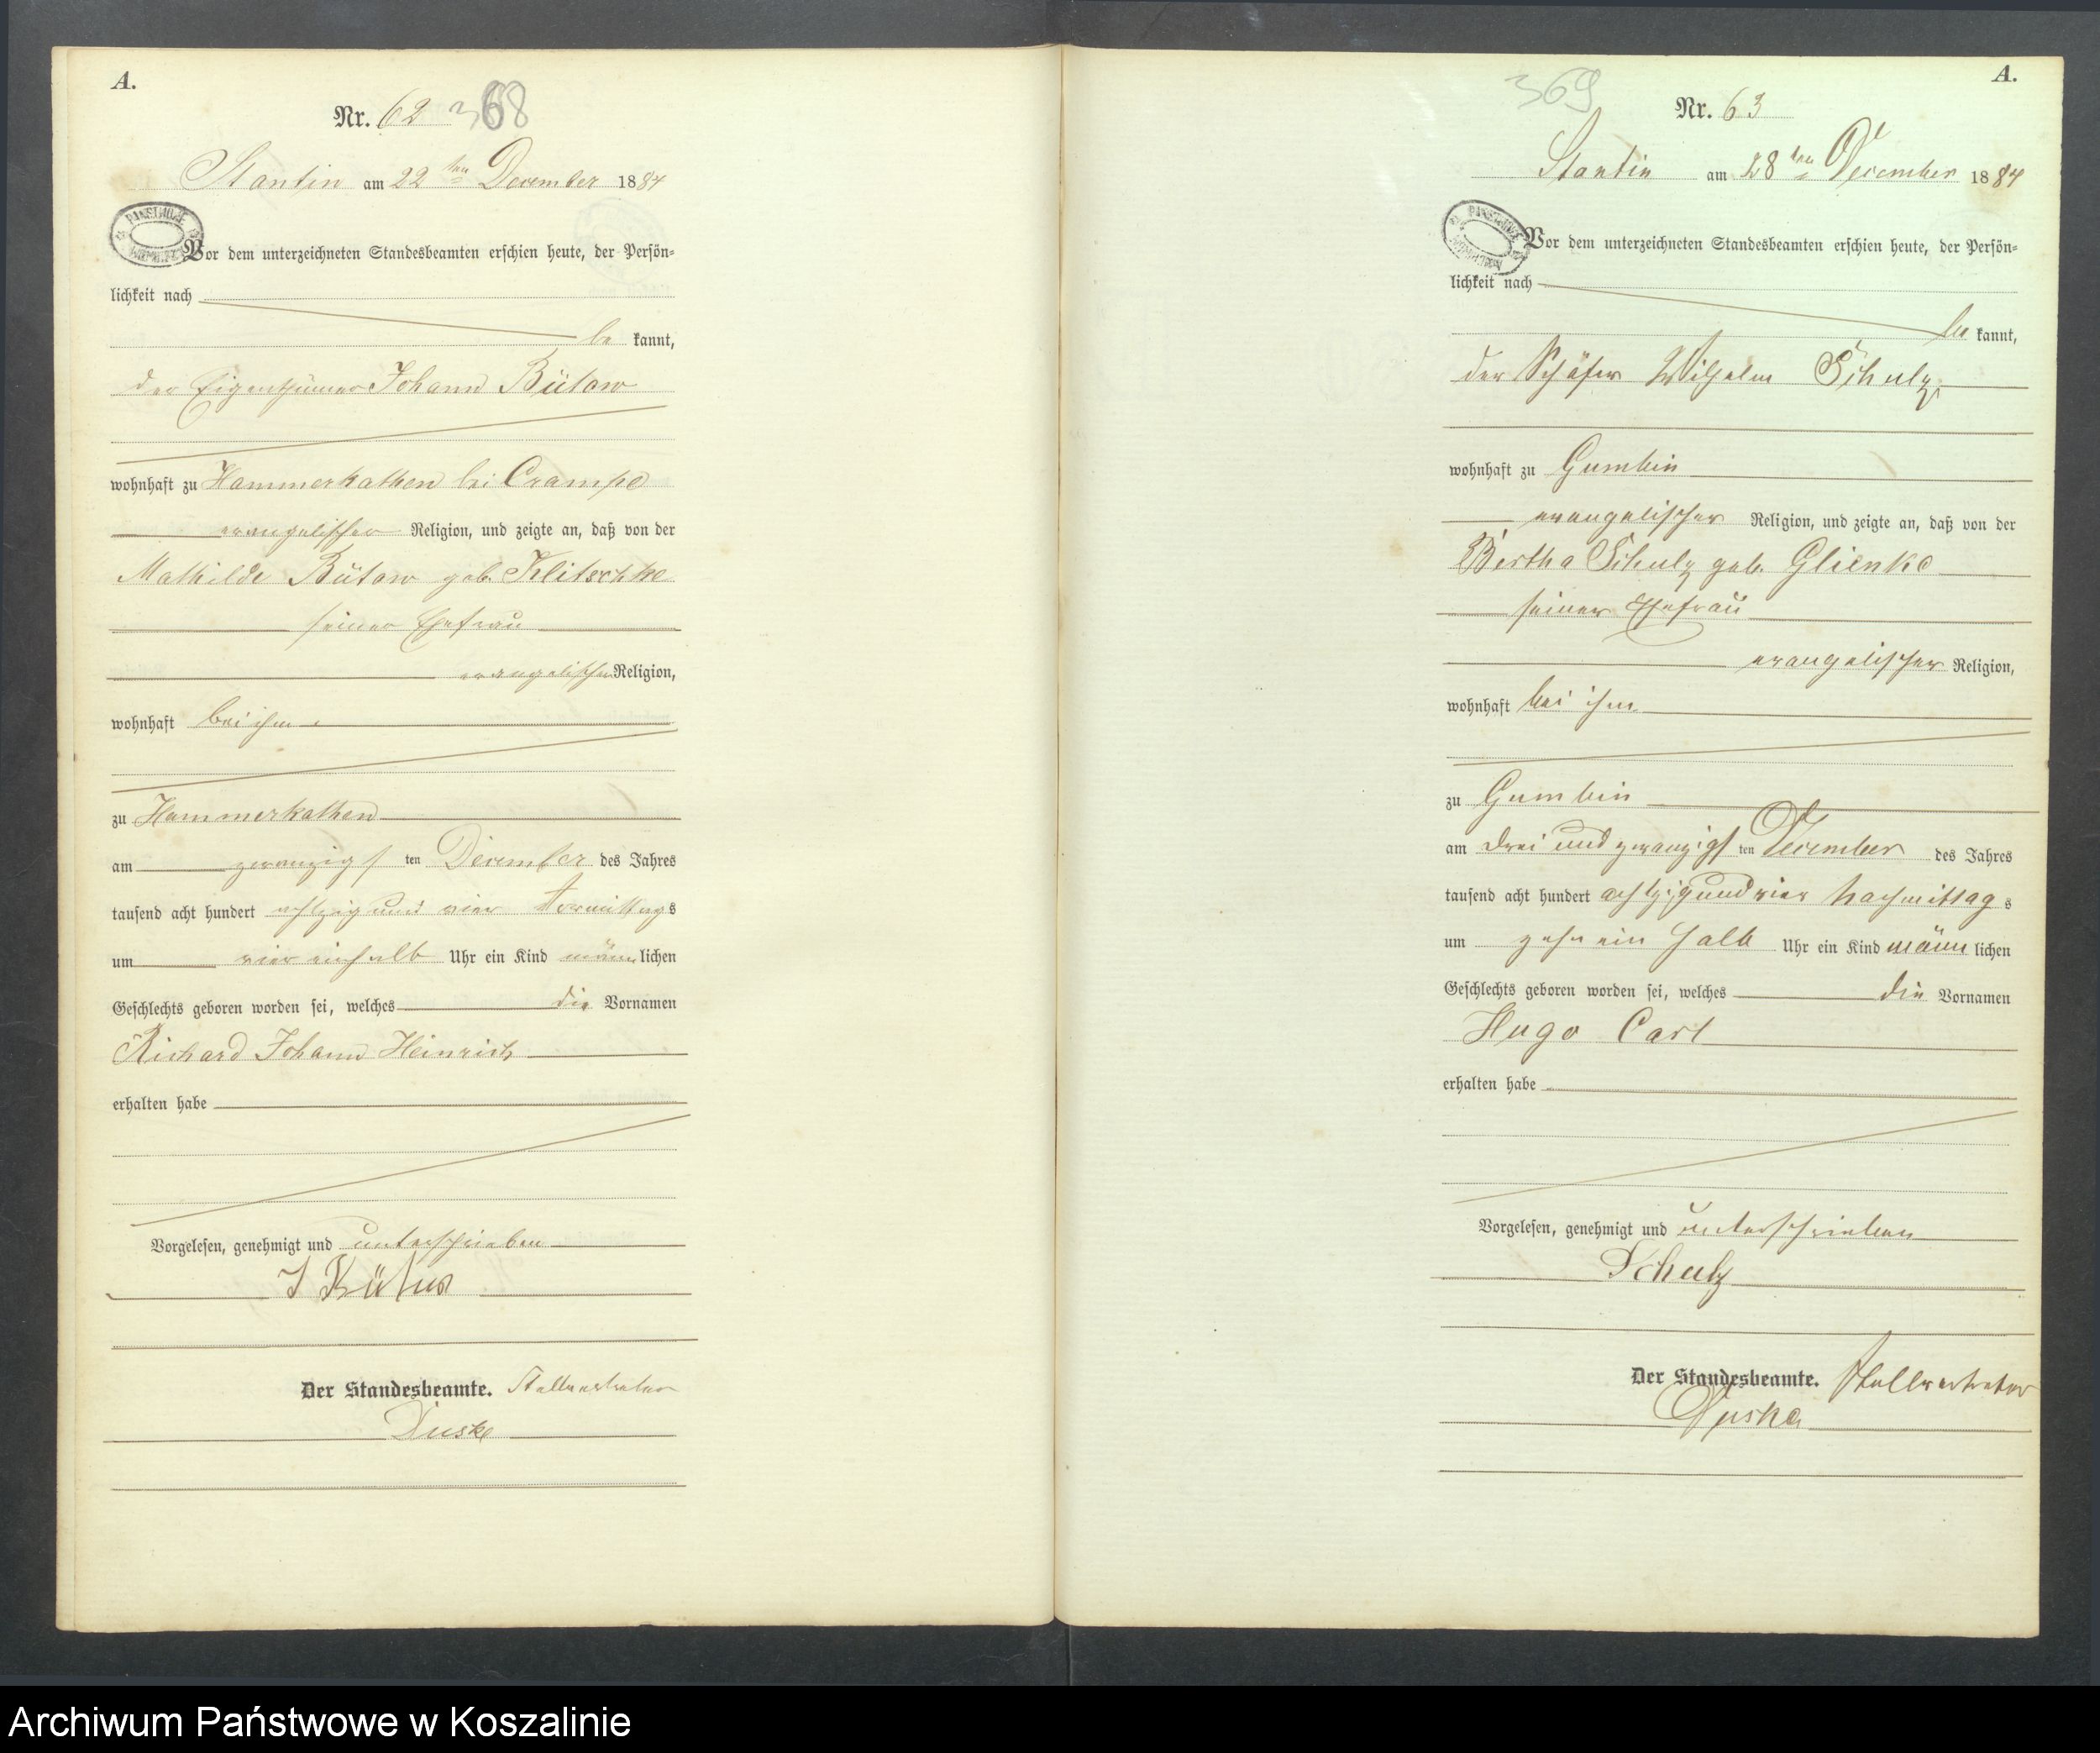 A.
Nr. 62 368
Stantin am 22ten December 1884
Vor dem unterzeichneten Standesbeamten erschien heute, der Persön-
lichkeit nach
be kannt,
der Eigenthümer Johann Bütow
wohnhaft zu Hammerkathen bei Crampe
evangelischer Religion, und zeigte an, daß von der
Mathilde Bütow geb. Klitschke
seiner Ehefrau
evangelischer Religion,
wohnhaft bei ihm
zu Hammerkathen
am zwanzigs ten December des Jahres
tausend acht hundert achtzig und vier Vormittags
um vier einhalb Uhr ein Kind männlichen
Geschlechts geboren worden sei, welches die Vornamen
Richard Johann Heinrich
erhalten habe
Vorgelesen, genehmigt und unterschrieben
J Bütow
Der Standesbeamte. Stellvertreter
Duske
A.
369
Nr. 63
Stantin am 28ten December 1884
PANSTWOWE
Vor dem unterzeichneten Standesbeamten erschien heute, der Persön-
lichkeit nach
be kannt,
der Schäfer Wilhelm Schulz
wohnhaft zu Gumbin
evangelischer Religion, und zeigte an, daß von der
Bertha Schulz geb. Glienke
seiner Ehefrau
evangelischer Religion,
wohnhaft bei ihm
zu Gumbin
am drei und zwanzigs ten December des Jahres
tausend acht hundert achtzig und vier Nachmittag s
um zehn ein halb Uhr ein Kind männ lichen
Geschlechts geboren worden sei, welches die Vornamen
Hugo Carl
erhalten habe
Vorgelesen, genehmigt und unterschrieben
Schulz
Der Standesbeamte. Stellvertreter
Duske
Archiwum Państwowe w Koszalinie